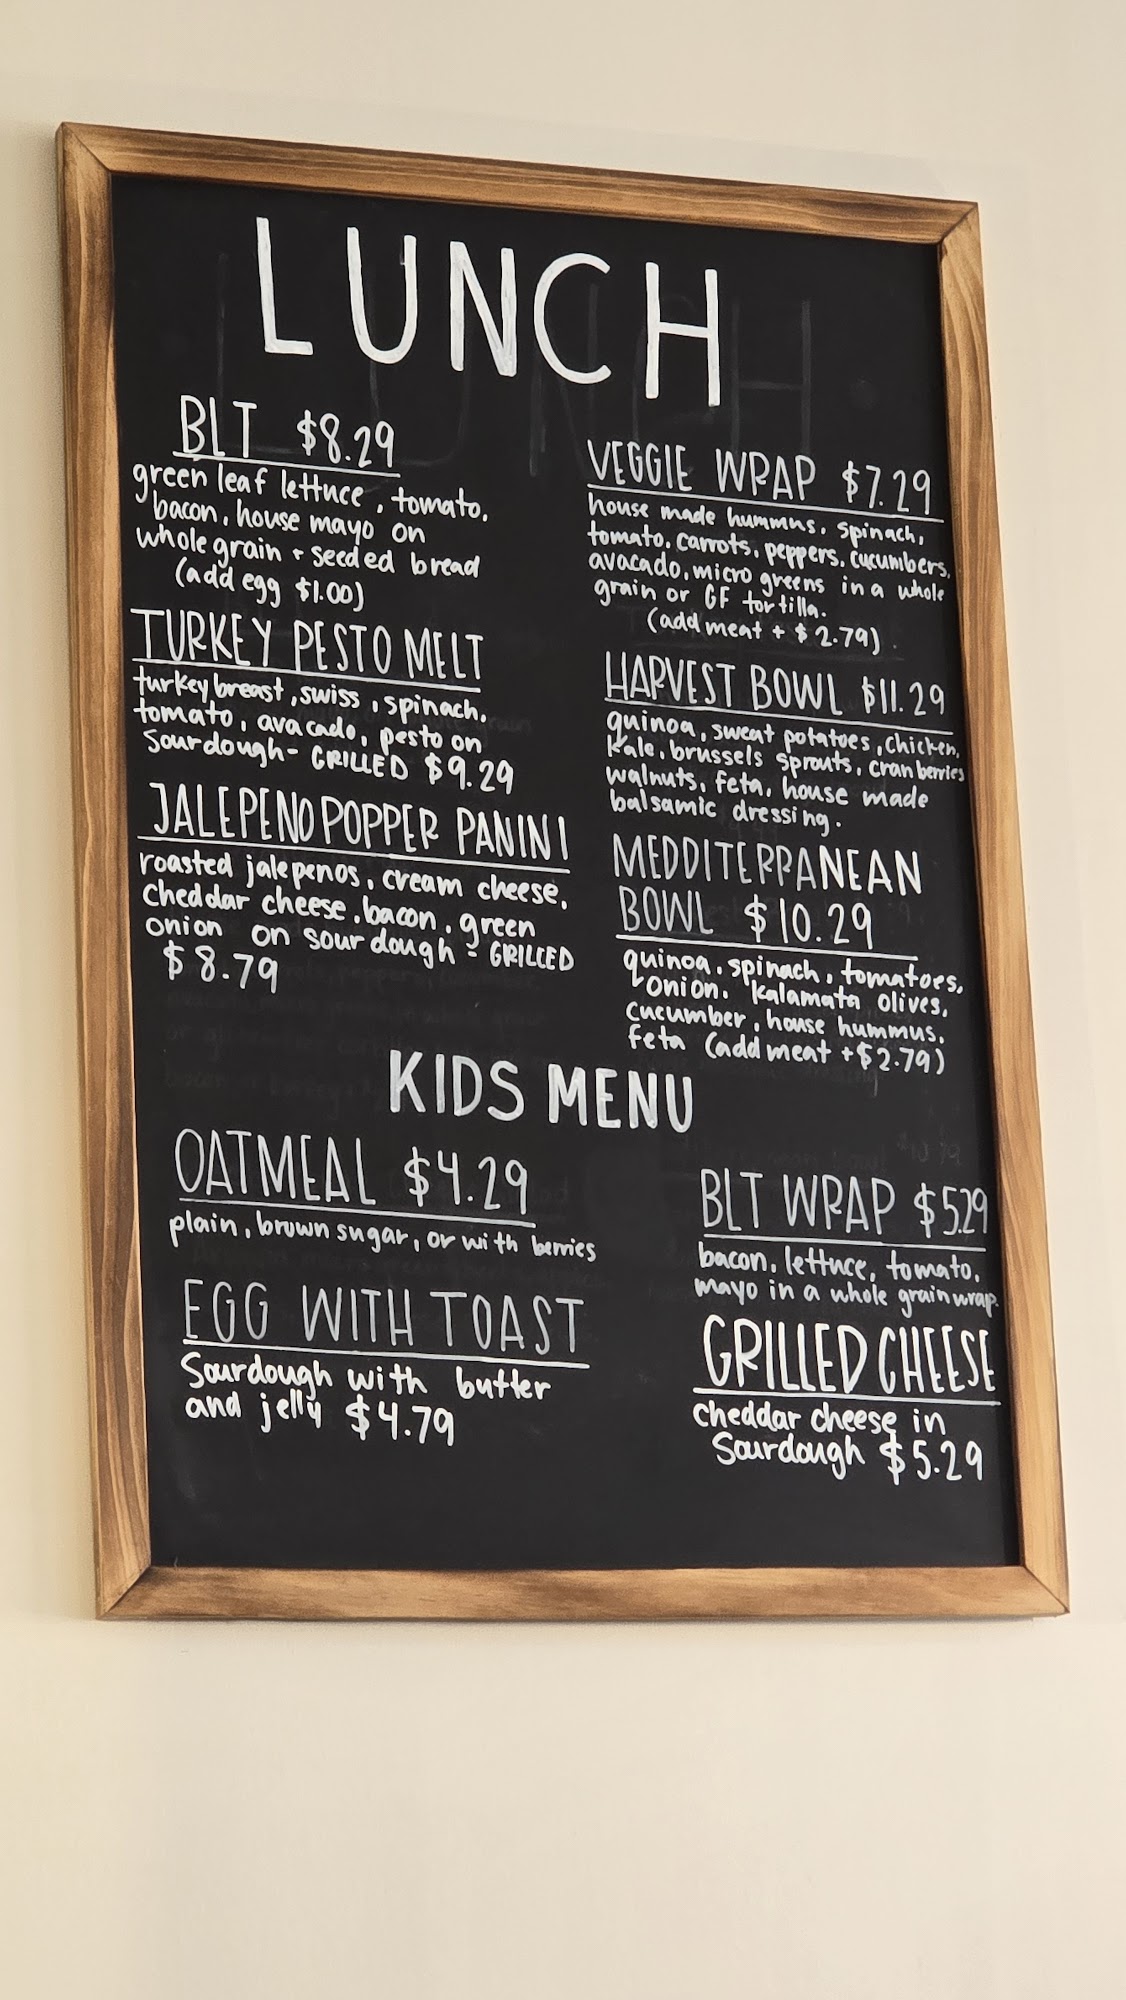 LUNCH
BLT $8.29
green leaf lettuce, tomato,
bacon, house mayo on
whole grain + seeded bread
(add egg $1.00)
TURKEY PESTO MELT
turkey breast, swiss, spinach,
tomato, avacado, pesto on
Sourdough - GRILLED $9.29
JALEPENO POPPER PANINI
roasted jalepenos, cream cheese,
cheddar cheese, bacon, green
onion on sourdough - GRILLED
$8.79
VEGGIE WRAP $7.29
house made hummus, spinach,
tomato, carrots, peppers, cucumbers,
avacado, micro greens in a whole
grain or GF tortilla.
(add meat + $2.79).
HARVEST BOWL $11.29
quinoa, sweat potatoes, chicken,
kale, brussels sprouts, cranberries
walnuts, feta, house made
balsamic dressing.
MEDDITERRANEAN
BOWL $10.29
quinoa, spinach, tomatoes,
onion, kalamata olives,
cucumber, house hummus,
feta (add meat +$2.79)
KIDS MENU
OATMEAL $4.29
plain, brown sugar, or with berries
EGG WITH TOAST
Sourdough with butter
and jelly $4.79
BLT WRAP $5.29
bacon, lettuce, tomato,
mayo in a whole grain wrap.
GRILLED CHEESE
cheddar cheese in
Sourdough $5.29